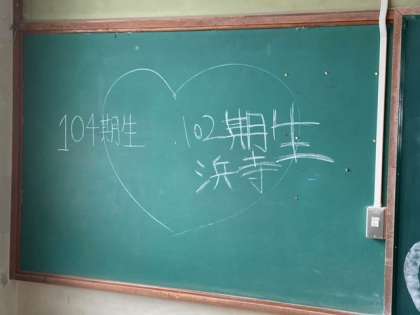 104期生
102期生
浜寺